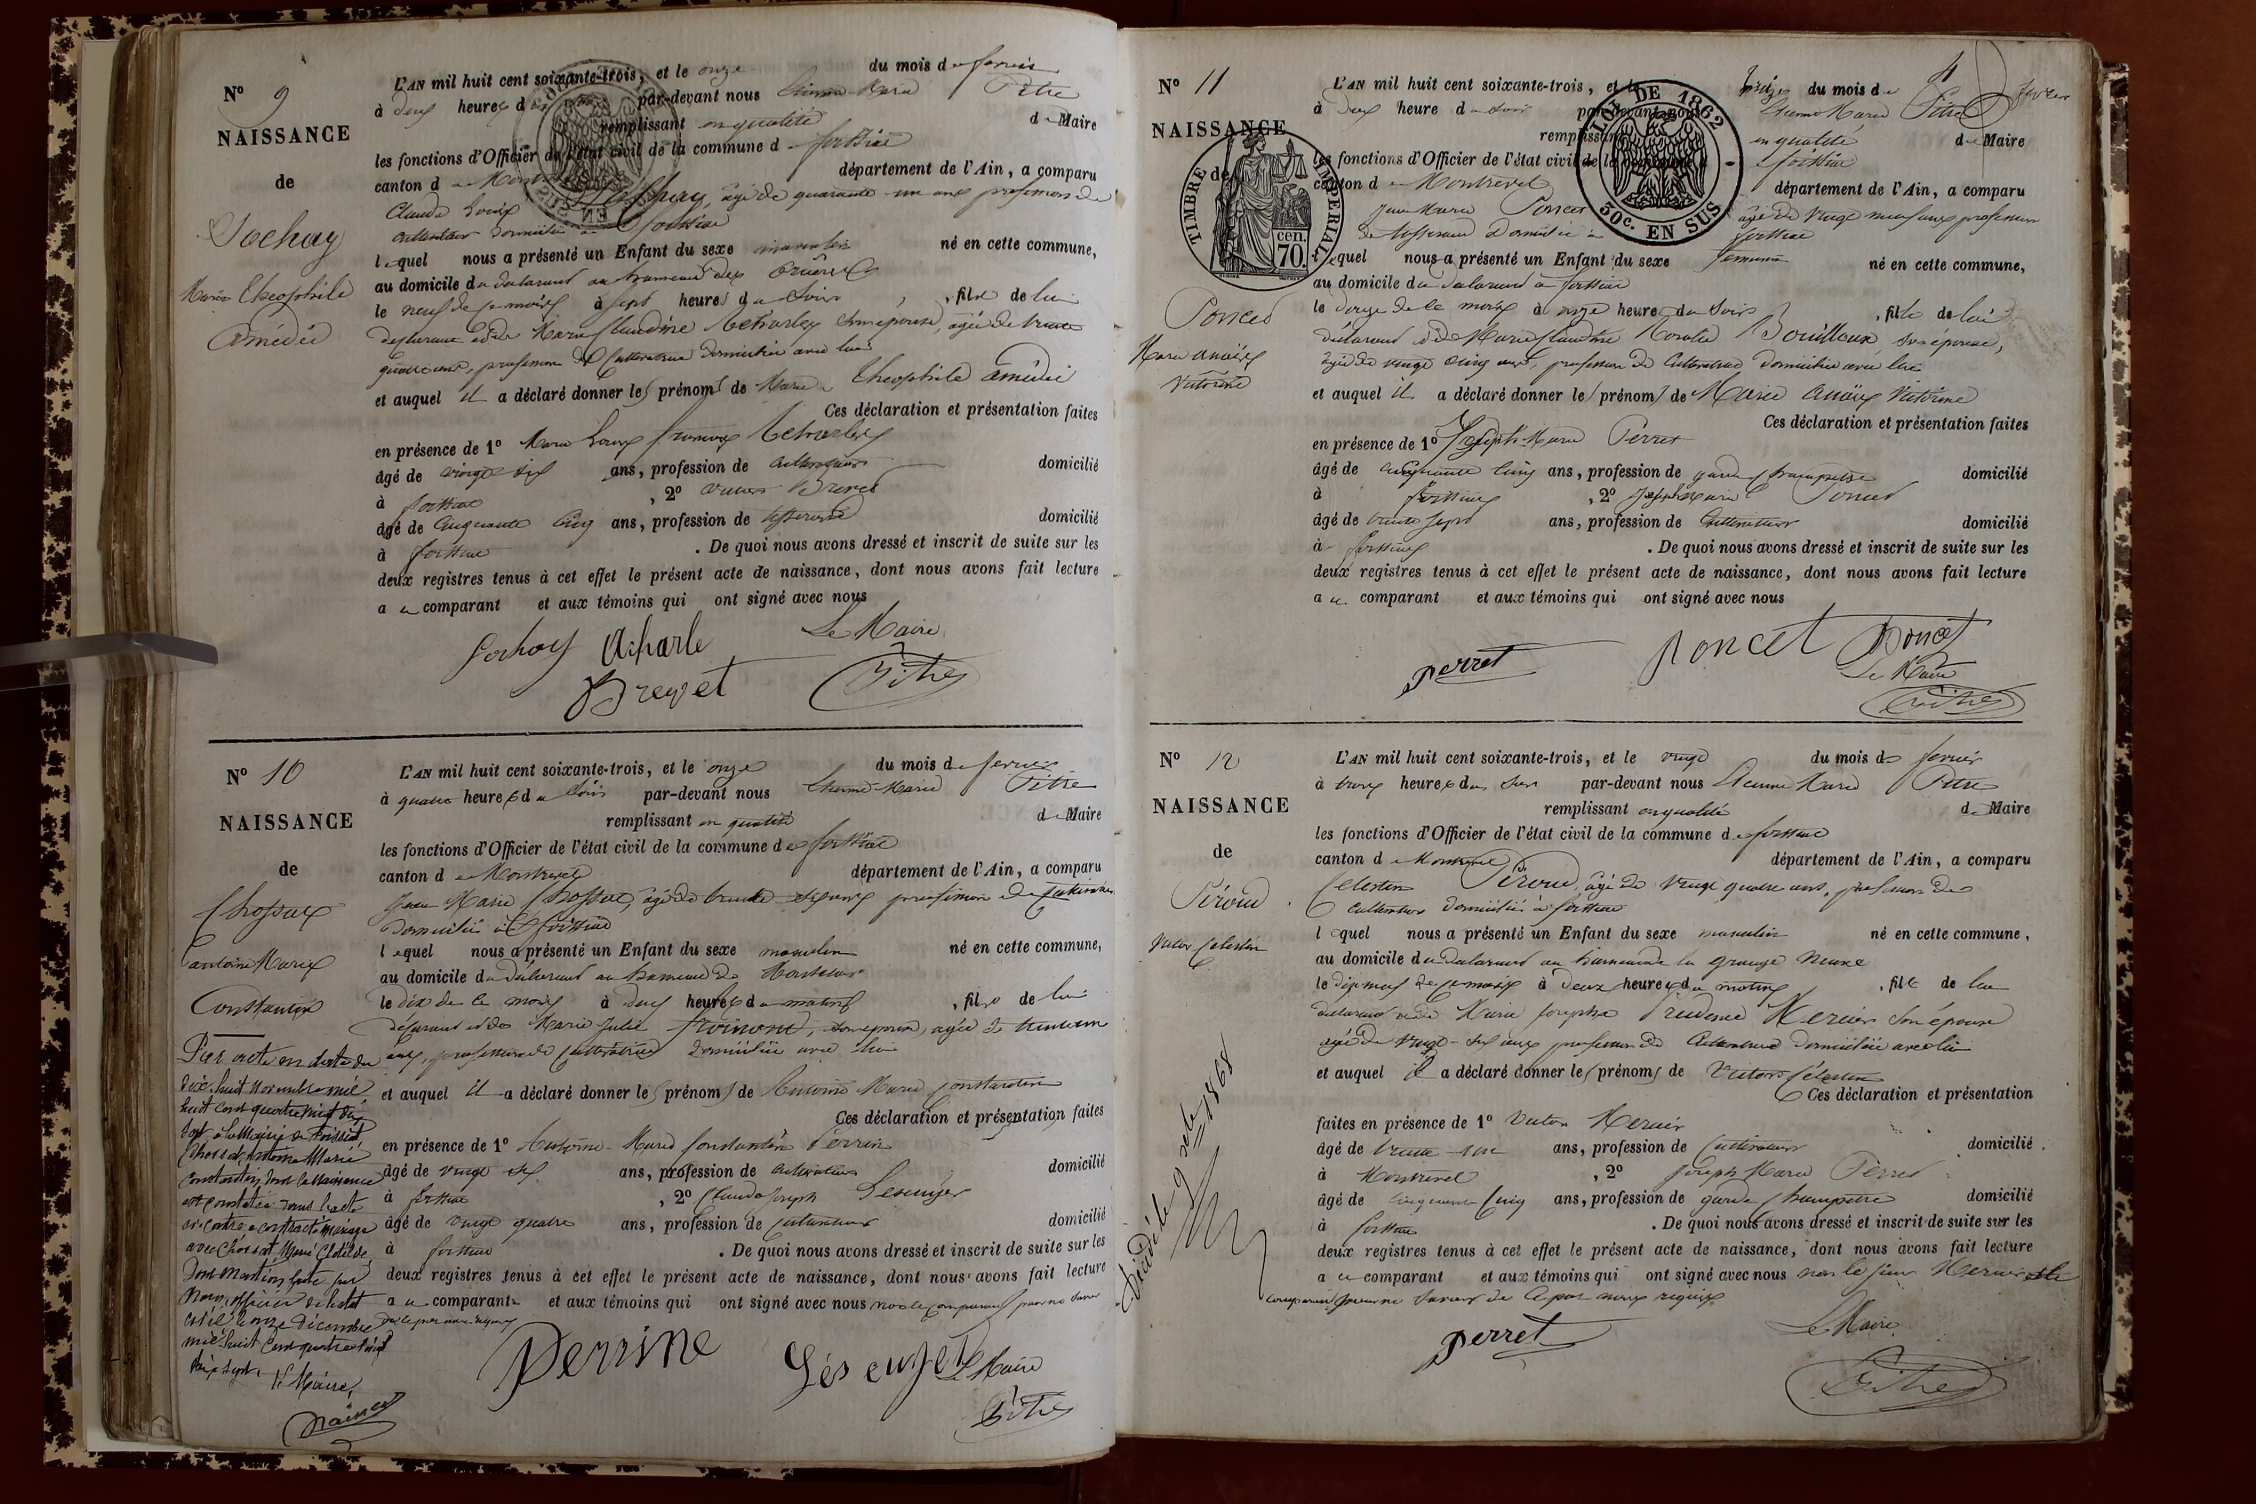 N° 9
NAISSANCE
de
Sochay
Marie Théophile
Amédée
L'AN mil huit cent soixante-trois, et le onze du mois de février
à deux heures d par-devant nous Etienne Marie Pitre
remplissant en qualité de Maire
les fonctions d'Officier de l'état civil de la commune de foissiat
canton de département de l'Ain, a comparu
Claude Louis Sochay, âgé de quarante un ans profession de
cultivateur domicilié à foissiat
lequel nous a présenté un Enfant du sexe masculin né en cette commune,
au domicile du déclarant au hameau des
le neuf de ce mois à sept heures du soir, fils de lui
déclarant et de Marie Claudine son épouse, âgée de trente
quatre ans, profession de cultivatrice domiciliée avec lui
et auquel il a déclaré donner les prénoms de Marie Théophile Amédée
Ces déclaration et présentation faites
en présence de 1° Marie Louis
âgé de vingt six ans, profession de cultivateur domicilié
à foissiat, 2° Brevet
âgé de cinquante cinq ans, profession de tisserand domicilié
à foissiat. De quoi nous avons dressé et inscrit de suite sur les
deux registres tenus à cet effet le présent acte de naissance, dont nous avons fait lecture
au comparant et aux témoins qui ont signé avec nous
Le Maire
Sochay
Brevet Pitre
N° 10
NAISSANCE
de
Chossat
antoine Marie
Constantin
L'AN mil huit cent soixante-trois, et le onze du mois de fevrier
à quatre heures du soir par-devant nous Etienne Marie Pitre
remplissant en qualité de Maire
les fonctions d'Officier de l'état civil de la commune de foissiat
canton de Montrevel département de l'Ain, a comparu
Jean Marie Chossat, âgé de trente six ans profession de cultivateur
domicilié à foissiat
lequel nous a présenté un Enfant du sexe masculin né en cette commune,
au domicile du déclarant au hameau de
le dix de ce mois à deux heures du matin, fils de lui
déclarant et de Marie Julie son épouse, âgée de trente un
ans, profession de cultivatrice domiciliée avec lui
et auquel il a déclaré donner les prénoms de Antoine Marie Constantin
Ces déclaration et présentation faites
en présence de 1° Antoine Marie Constantin Perrin
âgé de vingt six ans, profession de cultivateur domicilié
à foissiat, 2° Claude Joseph
âgé de vingt quatre ans, profession de cultivateur domicilié
à foissiat. De quoi nous avons dressé et inscrit de suite sur les
deux registres tenus à cet effet le présent acte de naissance, dont nous avons fait lecture
au comparant et aux témoins qui ont signé avec nous non le comparant pour ne savoir
de ce par nous requis
Perrine Le Maire
Pitre
Par acte en date du
dix huit novembre mil
huit cent quatre vingt dix
sept à la Mairie de Foissiat,
Chossat Antoine Marie
Constantin, dont la Naissance
est constatée dans l'acte
ci-contre a contracté mariage
avec Chossat Marie Clotilde,
Dont Mention faite par
Nous, officier de l'état
civil le onze décembre
mil huit cent quatre vingt
dix sept.
Le Maire,
N° 11
NAISSANCE
de
TIMBRE IMPERIAL
70 cen.
Poncet
Marie anaïs
Victorine
LOI DE 1862
30c. EN SUS
L'AN mil huit cent soixante-trois, et le treize du mois de février
à deux heure du soir par-devant nous Etienne Marie Pitre
remplissant en qualité de Maire
les fonctions d'Officier de l'état civil de la commune de foissiat
canton de Montrevel département de l'Ain, a comparu
Jean Marie Poncet âgé de vingt neuf ans profession
de tisserand domicilié à foissiat
lequel nous a présenté un Enfant du sexe féminin né en cette commune,
au domicile du déclarant à foissiat
le douze de ce mois à onze heure du soir, fille de lui
déclarant et de Marie Claudine Coralie Bouilloux son épouse,
âgée de vingt cinq ans, profession de cultivatrice domiciliée avec lui
et auquel il a déclaré donner les prénoms de Marie Anaïs Victorine
Ces déclaration et présentation faites
en présence de 1° Joseph Marie Perret
âgé de cinquante cinq ans, profession de garde champetre domicilié
à foissiat, 2° Joseph Marie Poncet
âgé de trente sept ans, profession de cultivateur domicilié
à foissiat. De quoi nous avons dressé et inscrit de suite sur les
deux registres tenus à cet effet le présent acte de naissance, dont nous avons fait lecture
au comparant et aux témoins qui ont signé avec nous
Perret Poncet Poncet
Le Maire
Pitre
N° 12
NAISSANCE
de
Péroud
Victor Celestin
L'AN mil huit cent soixante-trois, et le vingt du mois de fevrier
à trois heures du soir par-devant nous Etienne Marie Pitre
remplissant en qualité de Maire
les fonctions d'Officier de l'état civil de la commune de foissiat
canton de Montrevel département de l'Ain, a comparu
Celestin Péroud, âgé de vingt quatre ans, profession de
cultivateur domicilié à foissiat
lequel nous a présenté un Enfant du sexe masculin né en cette commune,
au domicile du déclarant au hameau de la grange Neuve
le dix neuf de ce mois à deux heures du matin, fils de lui
déclarant et de Marie Josephe Prudence Mercier son épouse
âgée de vingt-six ans profession de cultivatrice domiciliée avec lui
et auquel il a déclaré donner les prénoms de Victor Célestin
Ces déclaration et présentation
faites en présence de 1° Victor Mercier
âgé de trente un ans, profession de cultivateur domicilié
à Montrevel, 2° Joseph Marie Perret
âgé de cinquante cinq ans, profession de garde champetre domicilié
à foissiat. De quoi nous avons dressé et inscrit de suite sur les
deux registres tenus à cet effet le présent acte de naissance, dont nous avons fait lecture
au comparant et aux témoins qui ont signé avec nous non le sieur Mercier et le
comparant pour ne savoir de ce par nous requis
Perret Le Maire
Pitre
Décédé le 9 1868